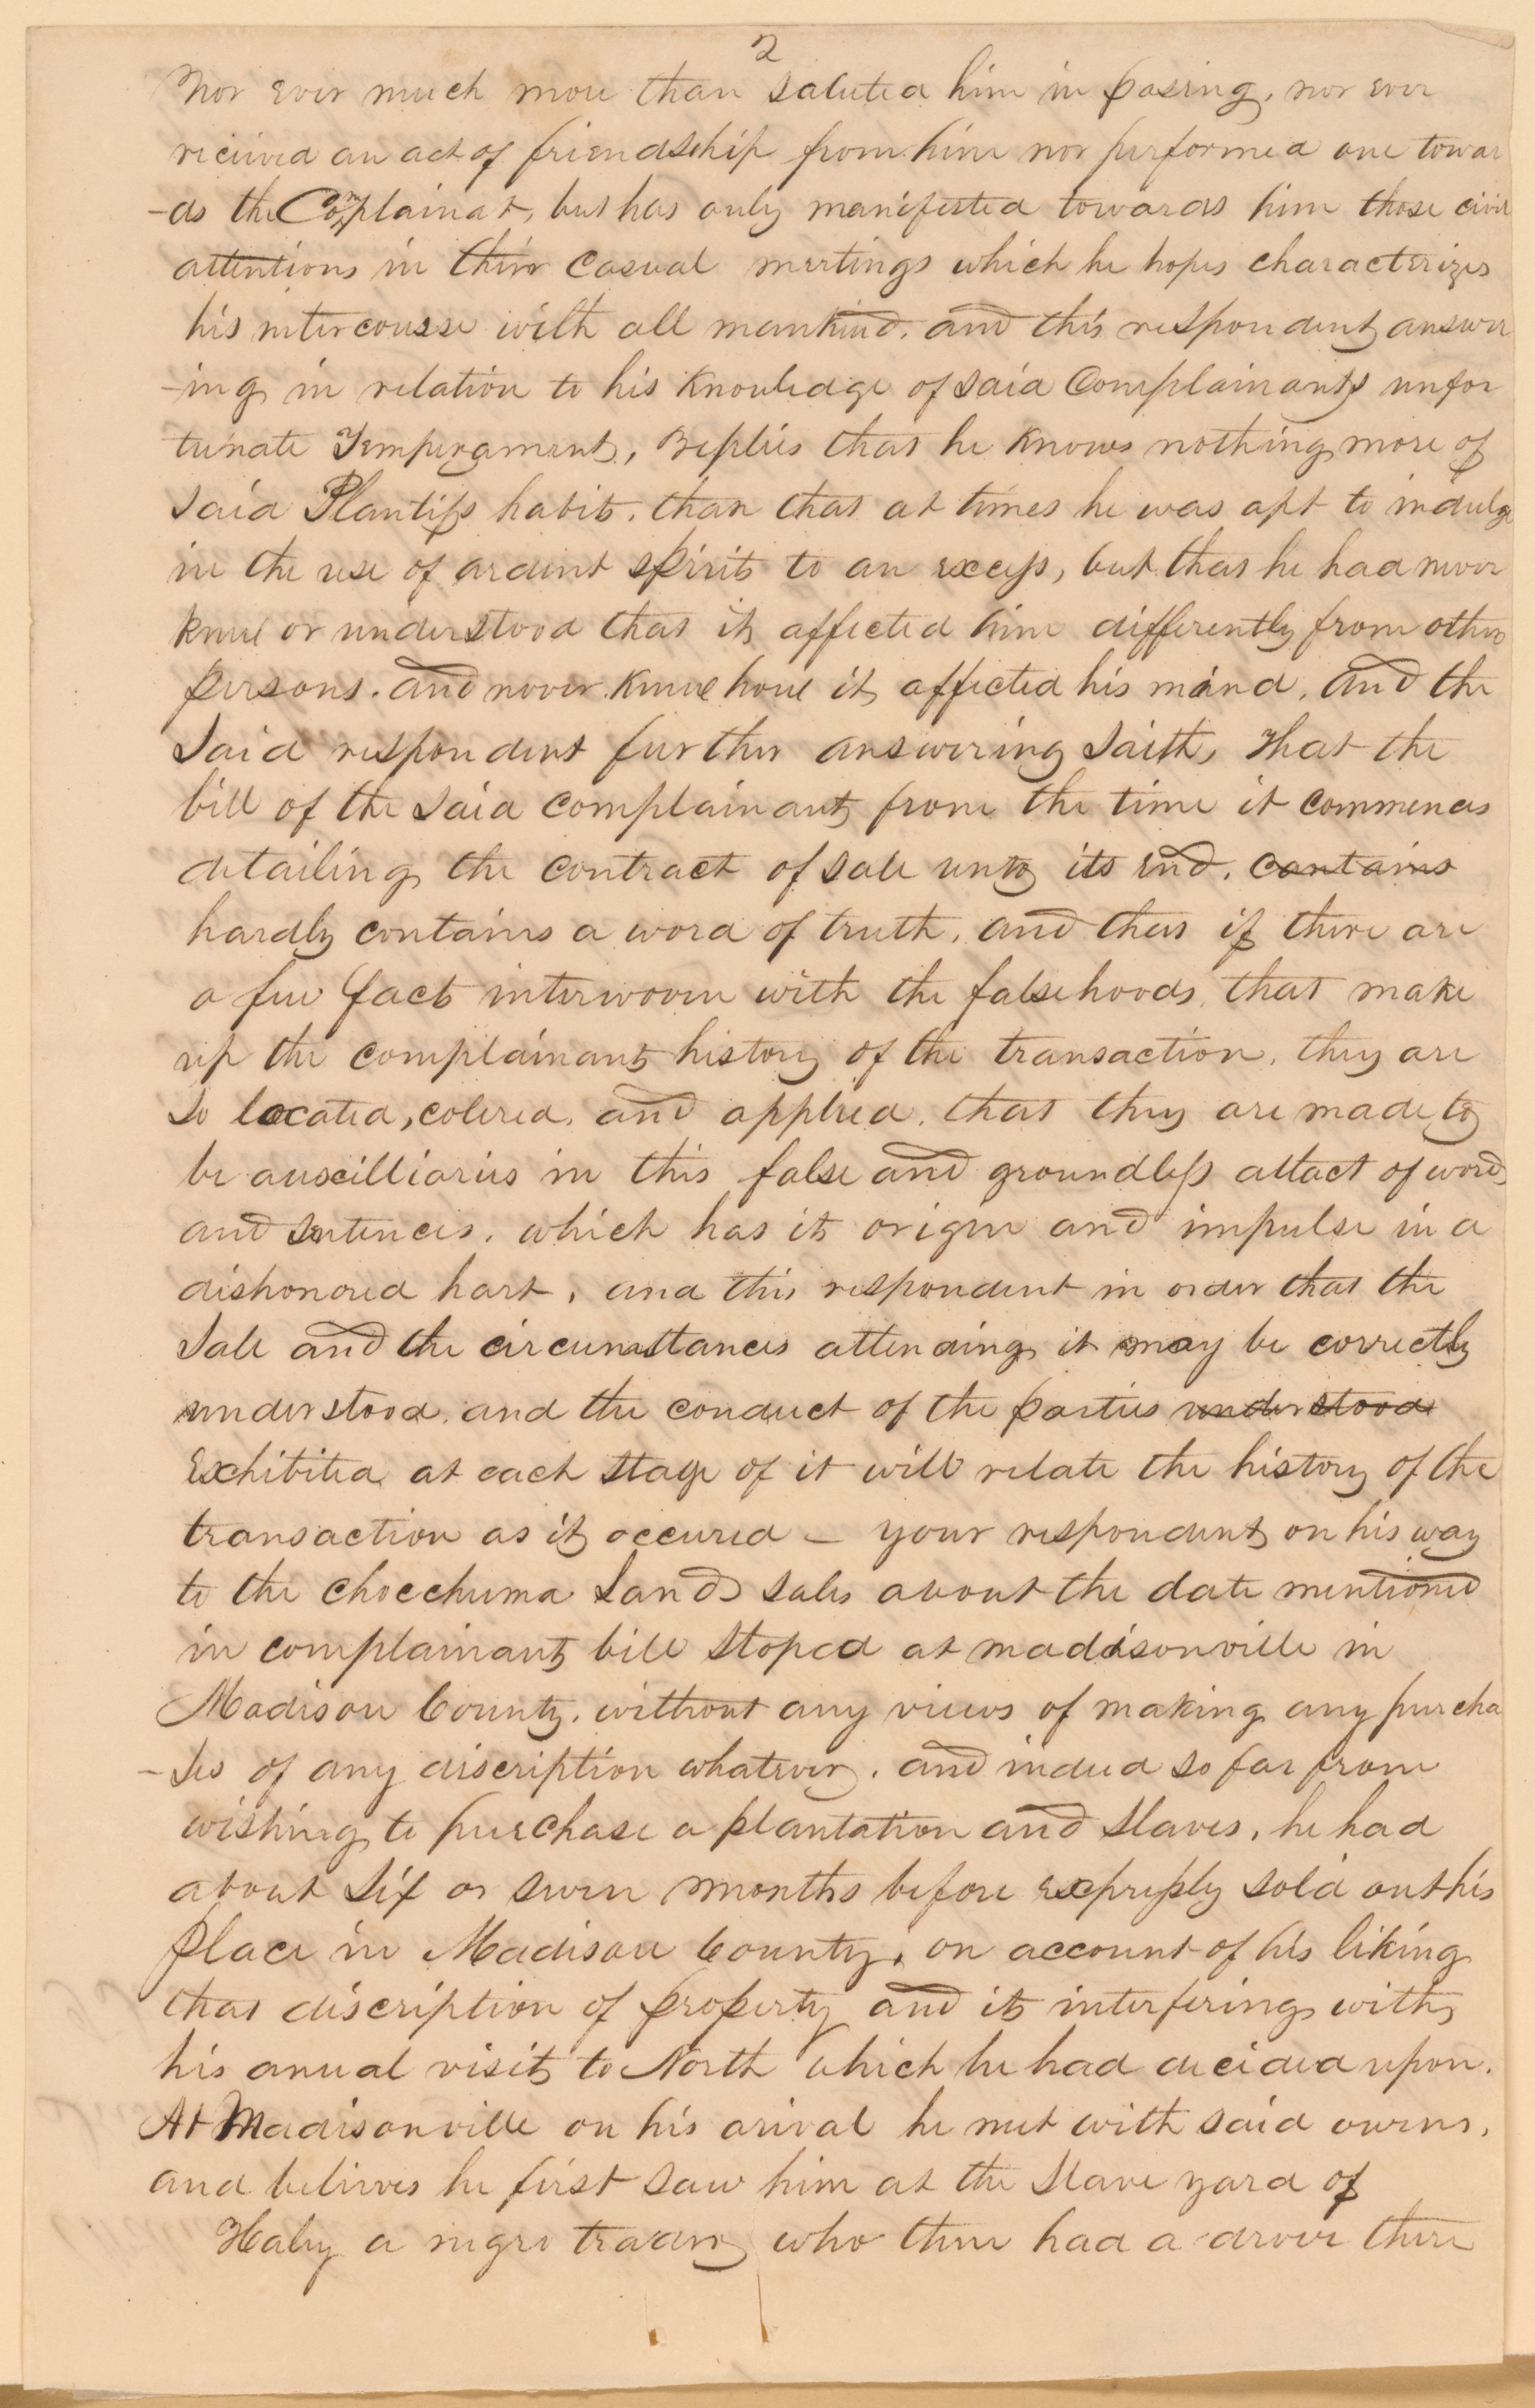 2
Nor ever much more than saluted him in pasing, nor ever
received an act of friendship from him nor performed one towar
-ds the Complainat, but has only manifested towards him those civil
attentions in their casual meetings which he hopes characterizes
his intercourse with all mankind. and this respondent answer
-ing in relation to his knowledge of said Complainants unfor
tunate Temperament, Replies that he knows nothing more of
said Plantiffs habits. than that at times he was apt to indulge
in the use of ardent spirits to an excess, but that he had never
knew or understood that it affected him differently from other
persons. and never knew how it affected his mind. And the
said respondent further answering saith, That the
bill of the said complainant from the time it commences
detailing the contract of sale unto its end. contains
hardly contains a word of truth, and that if there are
a few facts interwoven with the falsehoods that make
up the complainant history of the transaction, they are
so located, colered, and applied. that they are made to
be auxcilliaries in this false and groundless attact of words
and sentences. which has its origin and impulse in a
dishonored hart, and this respondent in order that the
sale and the circumstances attending it may be correctly
understood. and the conduct of the parties understood
Exhibited at each stage of it will relate the history of the
transaction as it occured – your respondent on his way
to the Chocchuma Land sales about the date mentioned
in complainant bill stoped at maddisonville in
Madison County. without any views of making any purcha
-ses of any discription whatever. and indeed so far from
wishing to purchase a plantation and slaves, he had
about six or seven months before expressly sold out his
place in Madison County, on account of his liking
that discription of property and its interfering with
his anual visits to North which he had decided upon.
At Madisonville on his arival he met with said owens,
and belives he first saw him at the slave yard of
Haly a negro trader who then had a drove there